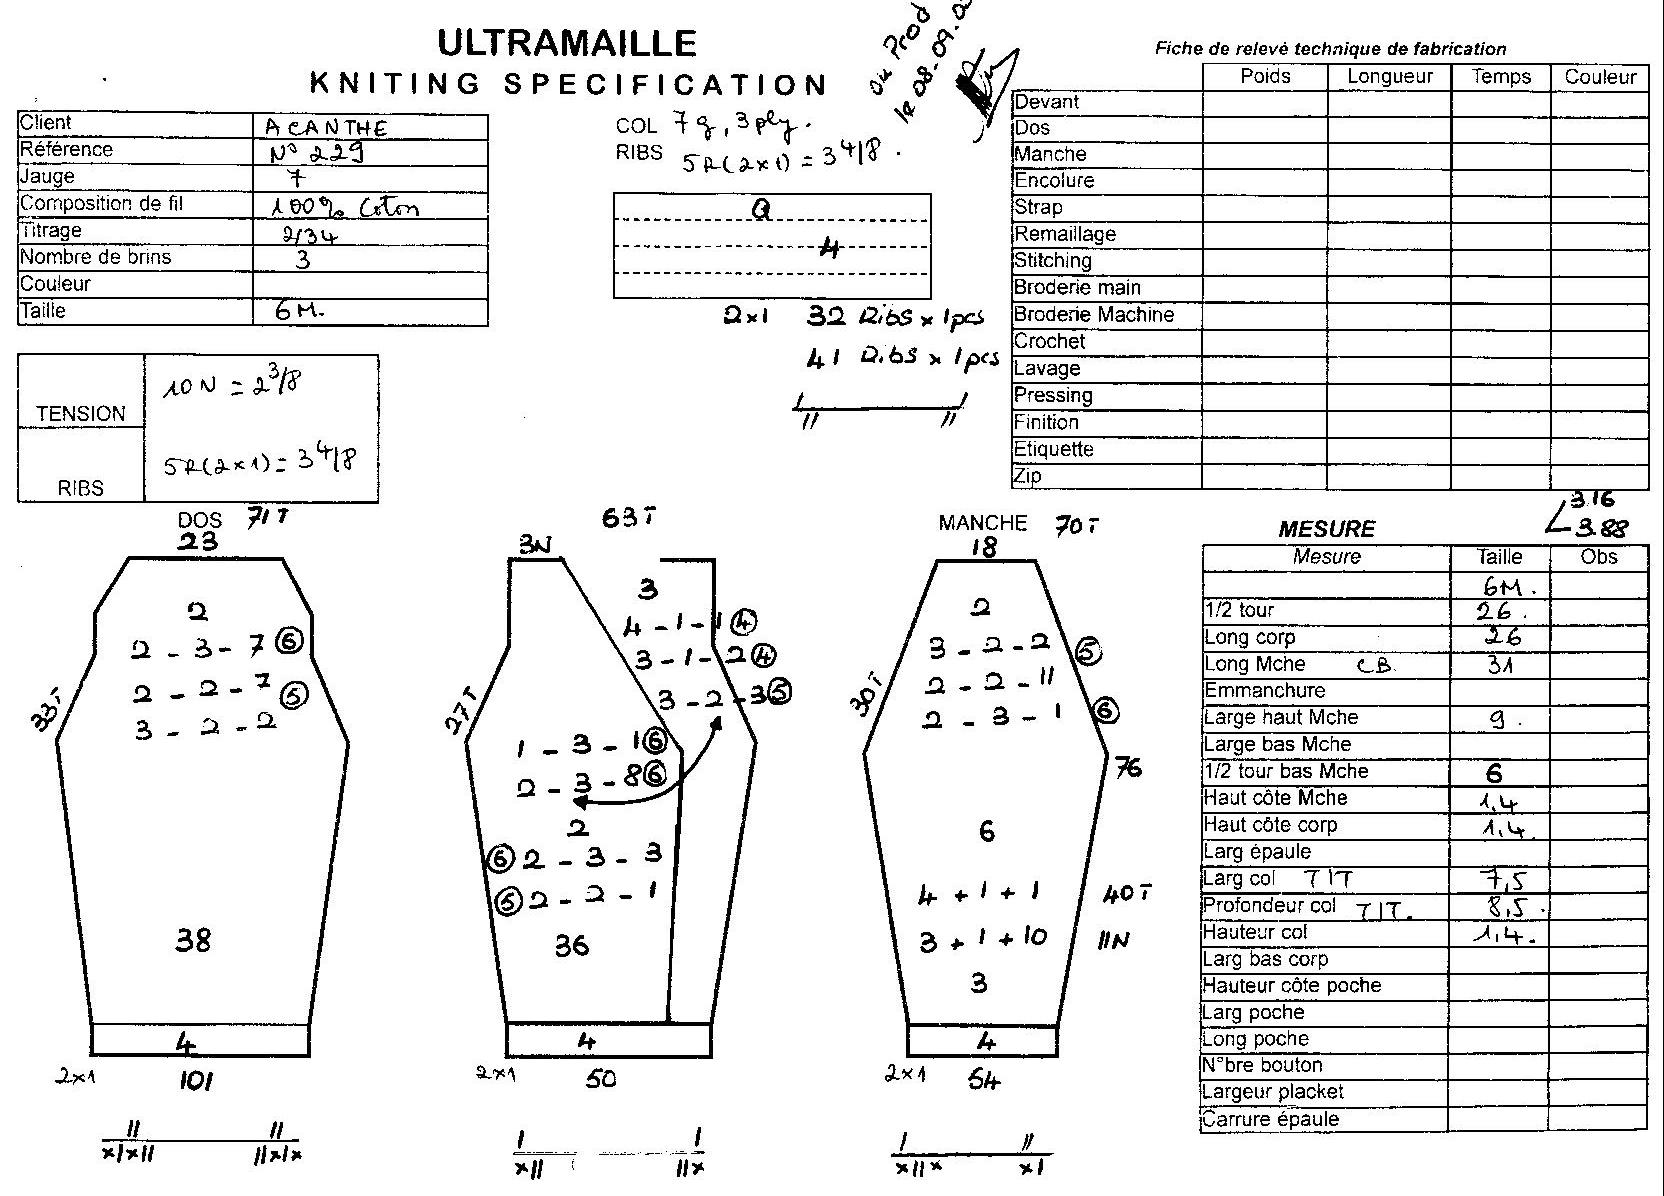 ULTRAMAILLE
KNITING SPECIFICATION
au Prod
le 08-09-0
Client ACANTHE
Référence N° 229
Jauge 7
Composition de fil 100% Coton
Titrage 2/34
Nombre de brins 3
Couleur
Taille 6M.
COL 7g, 3ply.
RIBS 5R(2x1) = 3 4/8.
4
2x1 32 Ribs x 1pcs
41 Ribs x 1pcs
Fiche de relevé technique de fabrication
Poids Longueur Temps Couleur
Devant
Dos
Manche
Encolure
Strap
Remaillage
Stitching
Broderie main
Broderie Machine
Crochet
Lavage
Pressing
Finition
Etiquette
Zip
TENSION 10N = 2 3/8
RIBS 5R(2x1) = 3 4/8
DOS 71T
23
2
2 - 3 - 7 6
2 - 2 - 7 5
3 - 2 - 2
33T
38
4
2x1 101
63T
3N
3
4 - 1 - 1 4
3 - 1 - 2 4
3 - 2 - 3 5
27T
1 - 3 - 1 6
2 - 3 - 8 6
2
6 2 - 3 - 3
5 2 - 2 - 1
36
4
2x1 50
MANCHE 70T
18
2
3 - 2 - 2 5
2 - 2 - 11
2 - 3 - 1 6
30T
76
6
4 + 1 + 1 40T
3 + 1 + 10 11N
3
4
2x1 54
3.16
3.88
MESURE
Mesure Taille Obs
6M.
1/2 tour 26.
Long corp 26
Long Mche CB. 31
Emmanchure
Large haut Mche 9.
Large bas Mche
1/2 tour bas Mche 6
Haut côte Mche 1,4
Haut côte corp 1,4
Larg épaule
Larg col TIT 7,5
Profondeur col TIT. 8,5.
Hauteur col 1,4.
Larg bas corp
Hauteur côte poche
Larg poche
Long poche
N°bre bouton
Largeur placket
Carrure épaule